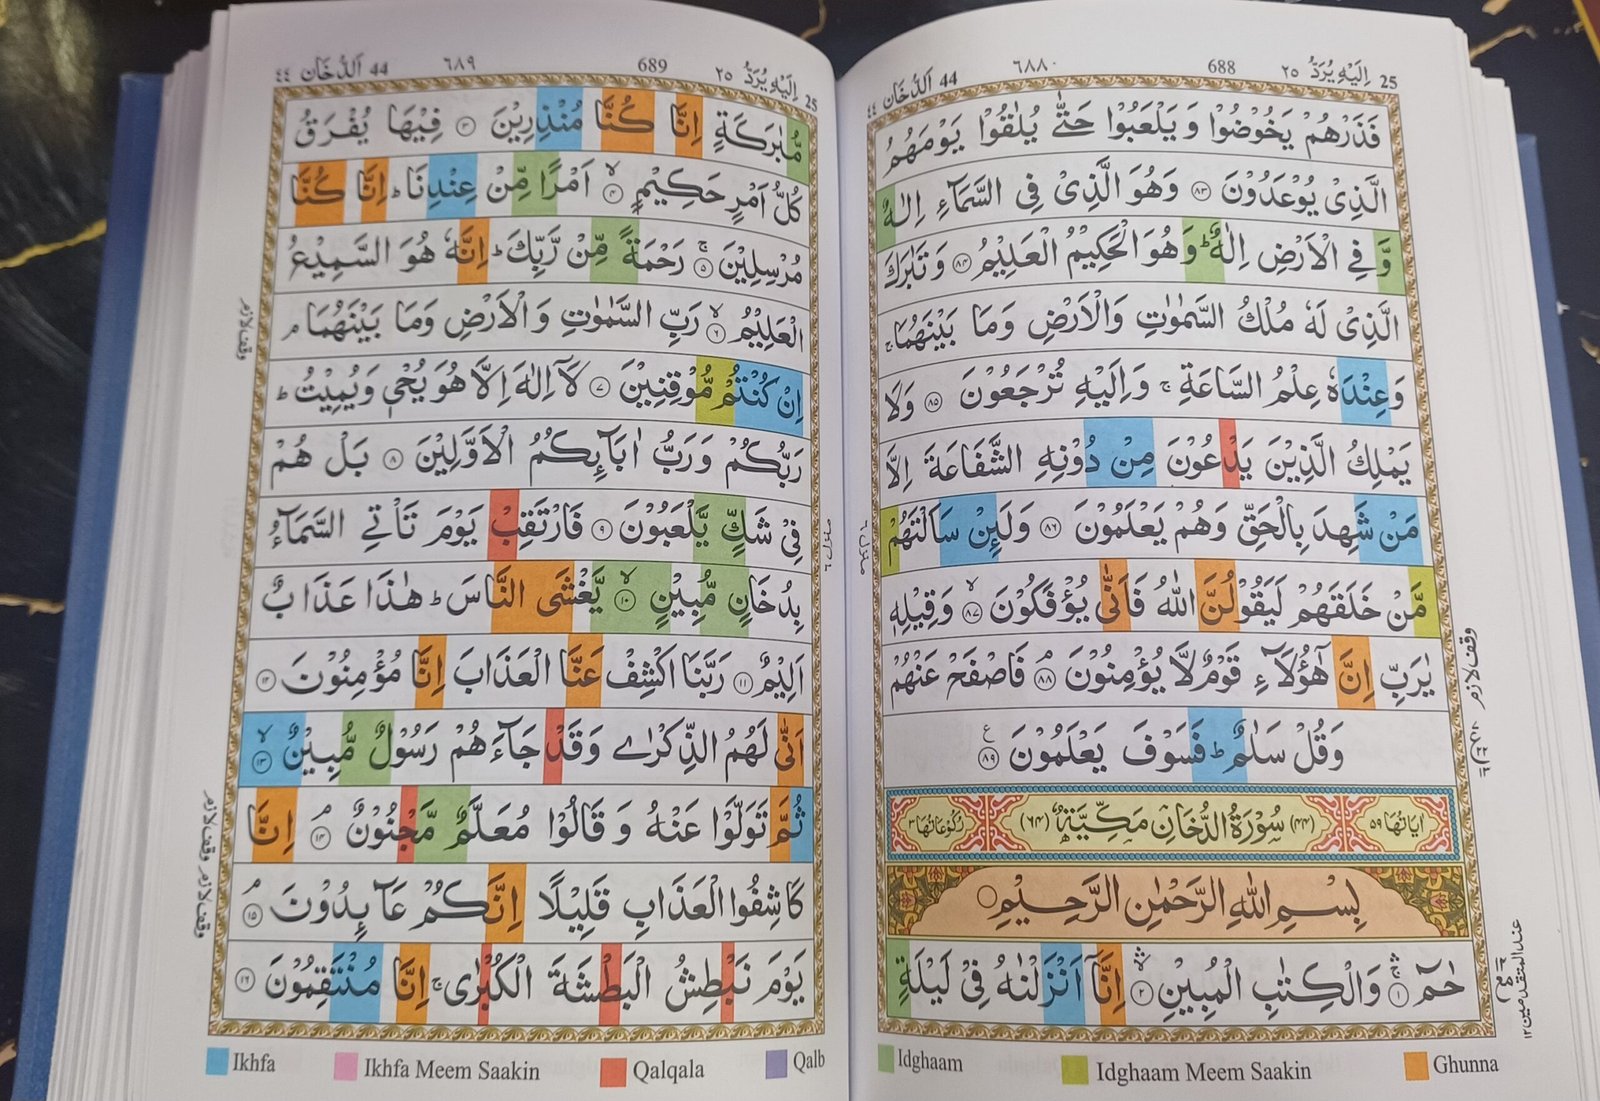 25 اِلَيْهِ يُرَدُّ ٢٥
688
٦٨٨
44 اَلدُّخَان ٤٤
فَذَرْهُمْ يَخُوْضُوْا وَيَلْعَبُوْا حَتّٰى يُلٰقُوْا يَوْمَهُمُ
الَّذِىْ يُوْعَدُوْنَ ۝٨٣ وَهُوَ الَّذِىْ فِى السَّمَآءِ اِلٰهٌ
وَّفِى الْاَرْضِ اِلٰهٌ ؕ وَهُوَ الْحَكِيْمُ الْعَلِيْمُ ۝٨٤ وَتَبٰرَكَ
الَّذِىْ لَهٗ مُلْكُ السَّمٰوٰتِ وَالْاَرْضِ وَمَا بَيْنَهُمَا ۚ
وَعِنْدَهٗ عِلْمُ السَّاعَةِ ۚ وَاِلَيْهِ تُرْجَعُوْنَ ۝٨٥ وَلَا
يَمْلِكُ الَّذِيْنَ يَدْعُوْنَ مِنْ دُوْنِهِ الشَّفَاعَةَ اِلَّا
مَنْ شَهِدَ بِالْحَقِّ وَهُمْ يَعْلَمُوْنَ ۝٨٦ وَلَئِنْ سَاَلْتَهُمْ
مَّنْ خَلَقَهُمْ لَيَقُوْلُنَّ اللّٰهُ فَاَنّٰى يُؤْفَكُوْنَ ۙ۝٨٧ وَقِيْلِهٖ
يٰرَبِّ اِنَّ هٰٓؤُلَآءِ قَوْمٌ لَّا يُؤْمِنُوْنَ ۘ۝٨٨ فَاصْفَحْ عَنْهُمْ
وَقُلْ سَلٰمٌ ؕ فَسَوْفَ يَعْلَمُوْنَ ۝٨٩
اٰيَاتُهَا ٥٩ (٤٤) سُوْرَةُ الدُّخَانِ مَكِّيَّةٌ (٦٤) رُكُوْعَاتُهَا ٣
بِسْمِ اللّٰهِ الرَّحْمٰنِ الرَّحِيْمِ
حٰمٓ ۚۛ۝١ وَالْكِتٰبِ الْمُبِيْنِ ۙۛ۝٢ اِنَّآ اَنْزَلْنٰهُ فِىْ لَيْلَةٍ
وقف لازم
عند المتقدمين ١٢
منزل ٦
Idghaam
Idghaam Meem Saakin
Ghunna
25 اِلَيْهِ يُرَدُّ ٢٥
689
٦٨٩
44 اَلدُّخَان ٤٤
مُّبٰرَكَةٍ اِنَّا كُنَّا مُنْذِرِيْنَ ۝٣ فِيْهَا يُفْرَقُ
كُلُّ اَمْرٍ حَكِيْمٍ ۙ۝٤ اَمْرًا مِّنْ عِنْدِنَا ؕ اِنَّا كُنَّا
مُرْسِلِيْنَ ۚ۝٥ رَحْمَةً مِّنْ رَّبِّكَ ؕ اِنَّهٗ هُوَ السَّمِيْعُ
الْعَلِيْمُ ۙ۝٦ رَبِّ السَّمٰوٰتِ وَالْاَرْضِ وَمَا بَيْنَهُمَا ۘ
اِنْ كُنْتُمْ مُّوْقِنِيْنَ ۝٧ لَآ اِلٰهَ اِلَّا هُوَ يُحْىٖ وَيُمِيْتُ ؕ
رَبُّكُمْ وَرَبُّ اٰبَآئِكُمُ الْاَوَّلِيْنَ ۝٨ بَلْ هُمْ
فِىْ شَكٍّ يَّلْعَبُوْنَ ۝٩ فَارْتَقِبْ يَوْمَ تَاْتِى السَّمَآءُ
بِدُخَانٍ مُّبِيْنٍ ۙ۝١٠ يَّغْشَى النَّاسَ ؕ هٰذَا عَذَابٌ
اَلِيْمٌ ۝١١ رَبَّنَا اكْشِفْ عَنَّا الْعَذَابَ اِنَّا مُؤْمِنُوْنَ ۝١٢
اَنّٰى لَهُمُ الذِّكْرٰى وَقَدْ جَآءَهُمْ رَسُوْلٌ مُّبِيْنٌ ۙ۝١٣
ثُمَّ تَوَلَّوْا عَنْهُ وَقَالُوْا مُعَلَّمٌ مَّجْنُوْنٌ ۘ۝١٤ اِنَّا
كَاشِفُوا الْعَذَابِ قَلِيْلًا اِنَّكُمْ عَآئِدُوْنَ ۘ۝١٥
يَوْمَ نَبْطِشُ الْبَطْشَةَ الْكُبْرٰى ۚ اِنَّا مُنْتَقِمُوْنَ ۝١٦
وقف لازم
وقف لازم وقف لازم
منزل ٦
Ikhfa
Ikhfa Meem Saakin
Qalqala
Qalb